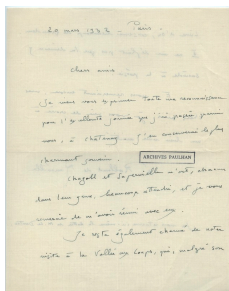 20 mars 1932 Paris.
Chers amis,
Je veux vous exprimer toute ma reconnaissance
pour l'excellente journée que j'ai passée parmi
vous, à Châtenay. J'en conserverai le plus
charmant souvenir.
ARCHIVES PAULHAN
Chagall et Supervielle m'ont, chacun
dans leur genre, beaucoup et je vous
remercie de m'avoir réuni avec eux.
Je reste également charmé de notre
visite à la Vallée aux Loups, qui, malgré son